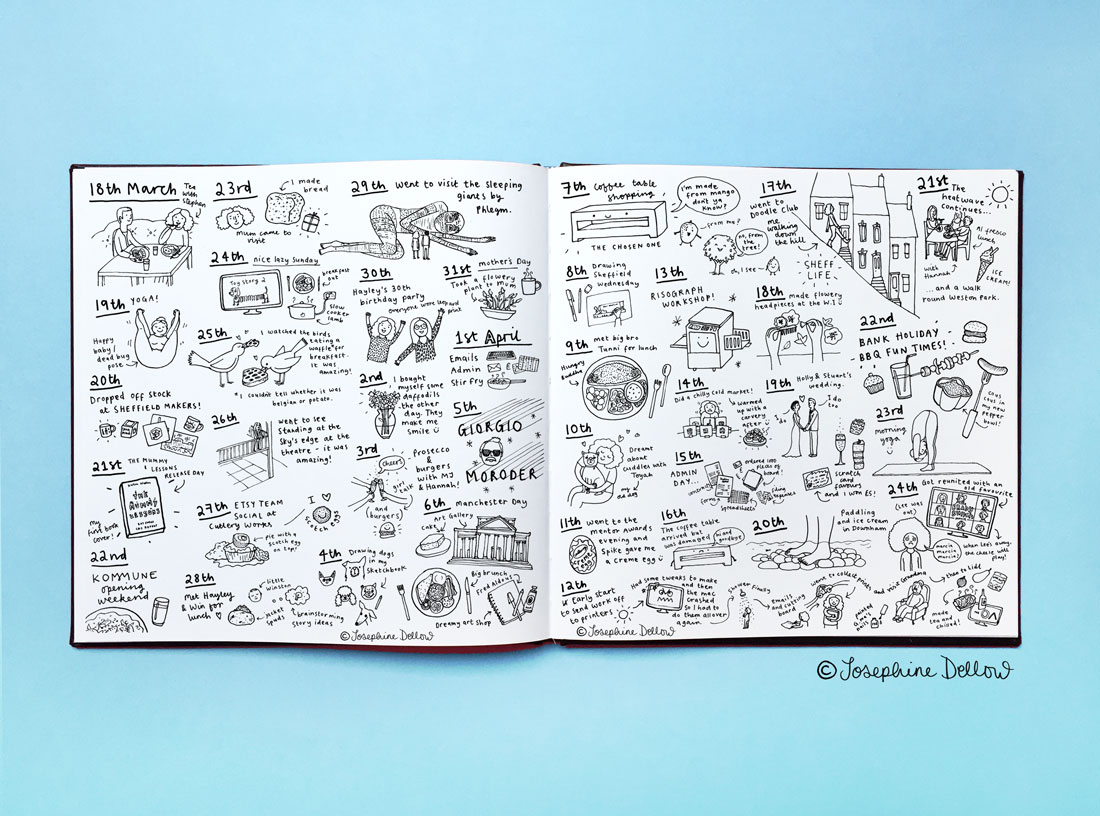 18th March
Tea
with
Stephen
19th YOGA!
Happy
baby/
dead bug
pose
20th
Dropped off stock
at SHEFFIELD MAKERS!
21st THE MUMMY
LESSONS
RELEASE DAY
my
first book
cover!
22nd
KOMMUNE
opening
weekend
23rd
I made
bread
Mum came to
visit
24th nice lazy Sunday
Toy Story 2
breakfast
out
slow
cooker
lamb
25th
I watched the birds
eating a
waffle* for
breakfast.
it was
amazing!
* I couldn't tell whether it was
belgian or potato.
26th
went to see
Standing at the
Sky's edge at the
theatre - it was
amazing!
27th ETSY TEAM
SOCIAL at
Cutlery Works
I ♡
scotch eggs
pie with a
scotch egg
on top!
28th
Met Hayley
& Win for
lunch ♡
little
Winston
jacket
spuds
brainstorming
story ideas
29th went to visit the sleeping
giants by
Phlegm.
30th
Hayley's 30th
birthday party
everyone wore leopard
print
31st mother's Day
Took
flowery
plant to mum
1st April
Emails
Admin
Stir fry
2nd
I bought
myself some
daffodils
the other
day. They
make me
smile
3rd
cheers
girl talk
(and
(burgers)
prosecco
&
burgers
with MJ
& Hannah!
4th Drawing dogs
in my
sketchbook
5th
GIORGIO
MORODER
6th Manchester Day
Art Gallery
Cake
Big brunch
Fred Aldous
Dreamy art shop
© Josephine Dellow
7th coffee table
shopping
I'm made
from mango
don't ya
know!
THE CHOSEN ONE
...from me?
no, from
the
tree!
oh, I see
8th Drawing
Sheffield
Wednesday
9th met big bro
Tunni for lunch
Hungry
10th
Dreamt
about
cuddles with
Toyah
my
old dog
11th Went to the
mentor Awards
evening and
Spike gave me
a creme egg
12th
Early start
to send work off
to printers
Had some tweaks to make
and then
the mac
crashed
so I had to
do them all over
again
13th
RISOGRAPH
WORKSHOP!
14th
Did a chilly cold market!
warmed
up with a
carvery
after
15th
ADMIN
DAY...
forms
spreadsheets
16th
The coffee table
arrived but
was damaged
hi and
goodbye
17th
went to
Doodle Club
me
walking
down
the hill
SHEFF
LIFE
18th made flowery
headpieces at the W.I
19th Holly & Stuart's
wedding.
I do
I do
too
scratch
card
favours
and I won £5!
20th
Paddling
and ice cream
in Downham
21st The
heatwave
continues...
Al fresco
lunch
ICE
CREAM!
with
Hannah
...and a walk
round Weston Park.
22nd
BANK HOLIDAY
BBQ FUN TIMES!
cous
cous in
my new
pepper
bowl!
23rd
morning
yoga
24th Got reunited with an
old favourite
marcia
marcia
marcia!
emails
and cutting
board
went to collect prints
painted
nails
and visit Grandma
made
tea and
chilled!
© Josephine Dellow
© Josephine Dellow